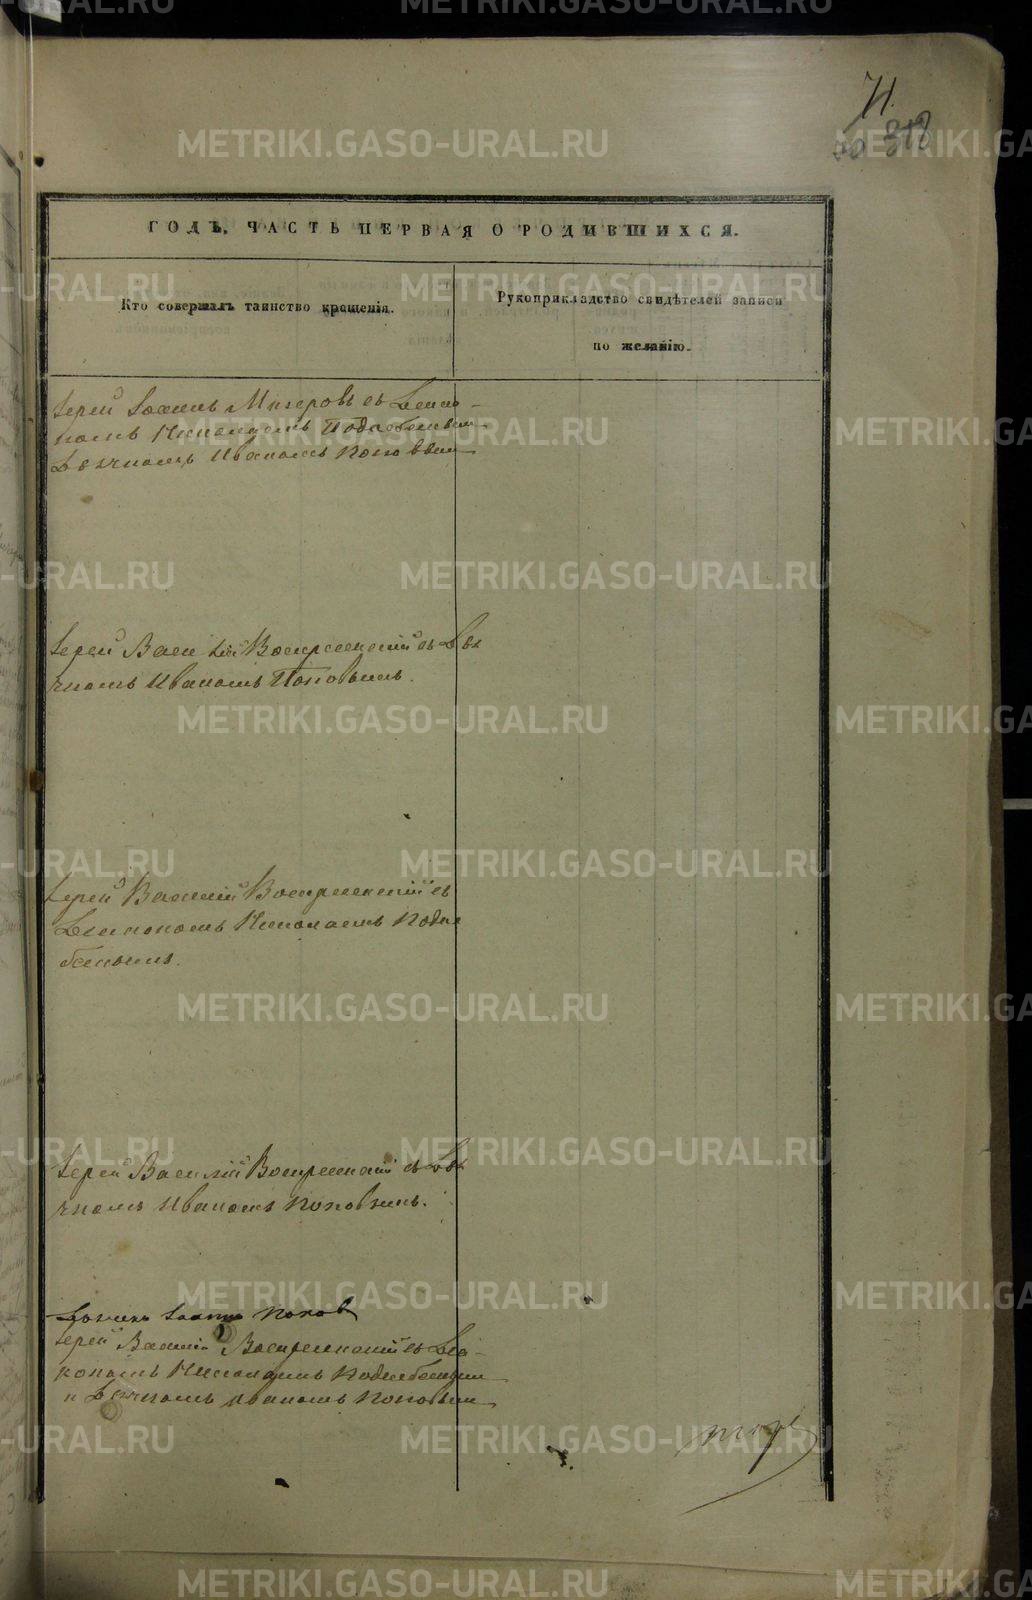 71.
318
ГОДЪ, ЧАСТЬ ПЕРВАЯ О РОДИВШИХСЯ.
Кто совершалъ таинство крещенія.
Рукоприкладство свидѣтелей записи
по желанію.
Іерей Іоаннъ Мизеровъ съ Діако-
номъ Николаемъ Подкобылкин
Дьячкомъ Иваномъ Поповым
Іерей Василій Воскресенскій съ Дья
чкомъ Иваномъ Поповымъ.
Іерей Василій Воскресенскій съ
Діакономъ Николаемъ
Іерей Василій Воскресенскій съ Дья
чкомъ Иваномъ Поповымъ.
Дьячекъ Іоаннъ Попов
Іерей Василій Воскресенскій съ Діа-
кономъ Николаемъ
и Дьячкомъ Иваномъ Поповым
METRIKI.GASO-URAL.RU